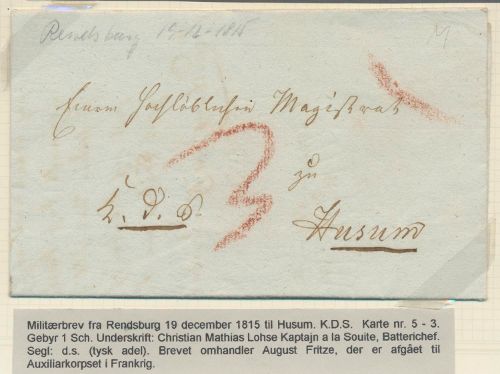 Rendsburg 19-12-1815
Einem Hochlöblichen Magistrat
zu
3
K. D. S.
Husum
Militærbrev fra Rendsburg 19 december 1815 til Husum. K.D.S. Karte nr. 5 - 3.
Gebyr 1 Sch. Underskrift: Christian Mathias Lohse Kaptajn a la Souite, Batterichef.
Segl: d.s. (tysk adel). Brevet omhandler August Fritze, der er afgået til
Auxiliarkorpset i Frankrig.